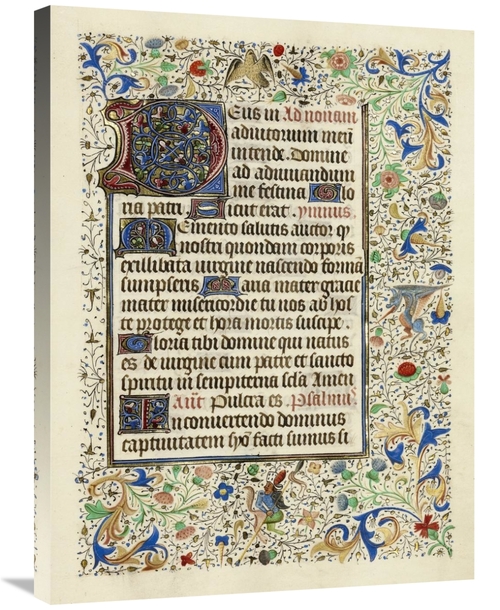 Deus in Ad nonam
adiutorium meū
intende. Domine
ad adiuuandum
me festina Glo
ria patri. Sicut erat. ymnus.
Memento salutis auctor qͥ
nostri quondam corporis
ex illibata uirgine nascendo formā
sumpseris Maria mater gracie
mater misericordie tu nos ab hoste
protege et hora mortis suscipe.
Gloria tibi domine qui natus
es de uirgine cum patre et sancto
spiritu in sempiterna sc̄la Amen
Añt Pulcra es. Psalmus
In conuertendo dominus
captiuitatem syō facti sumus si